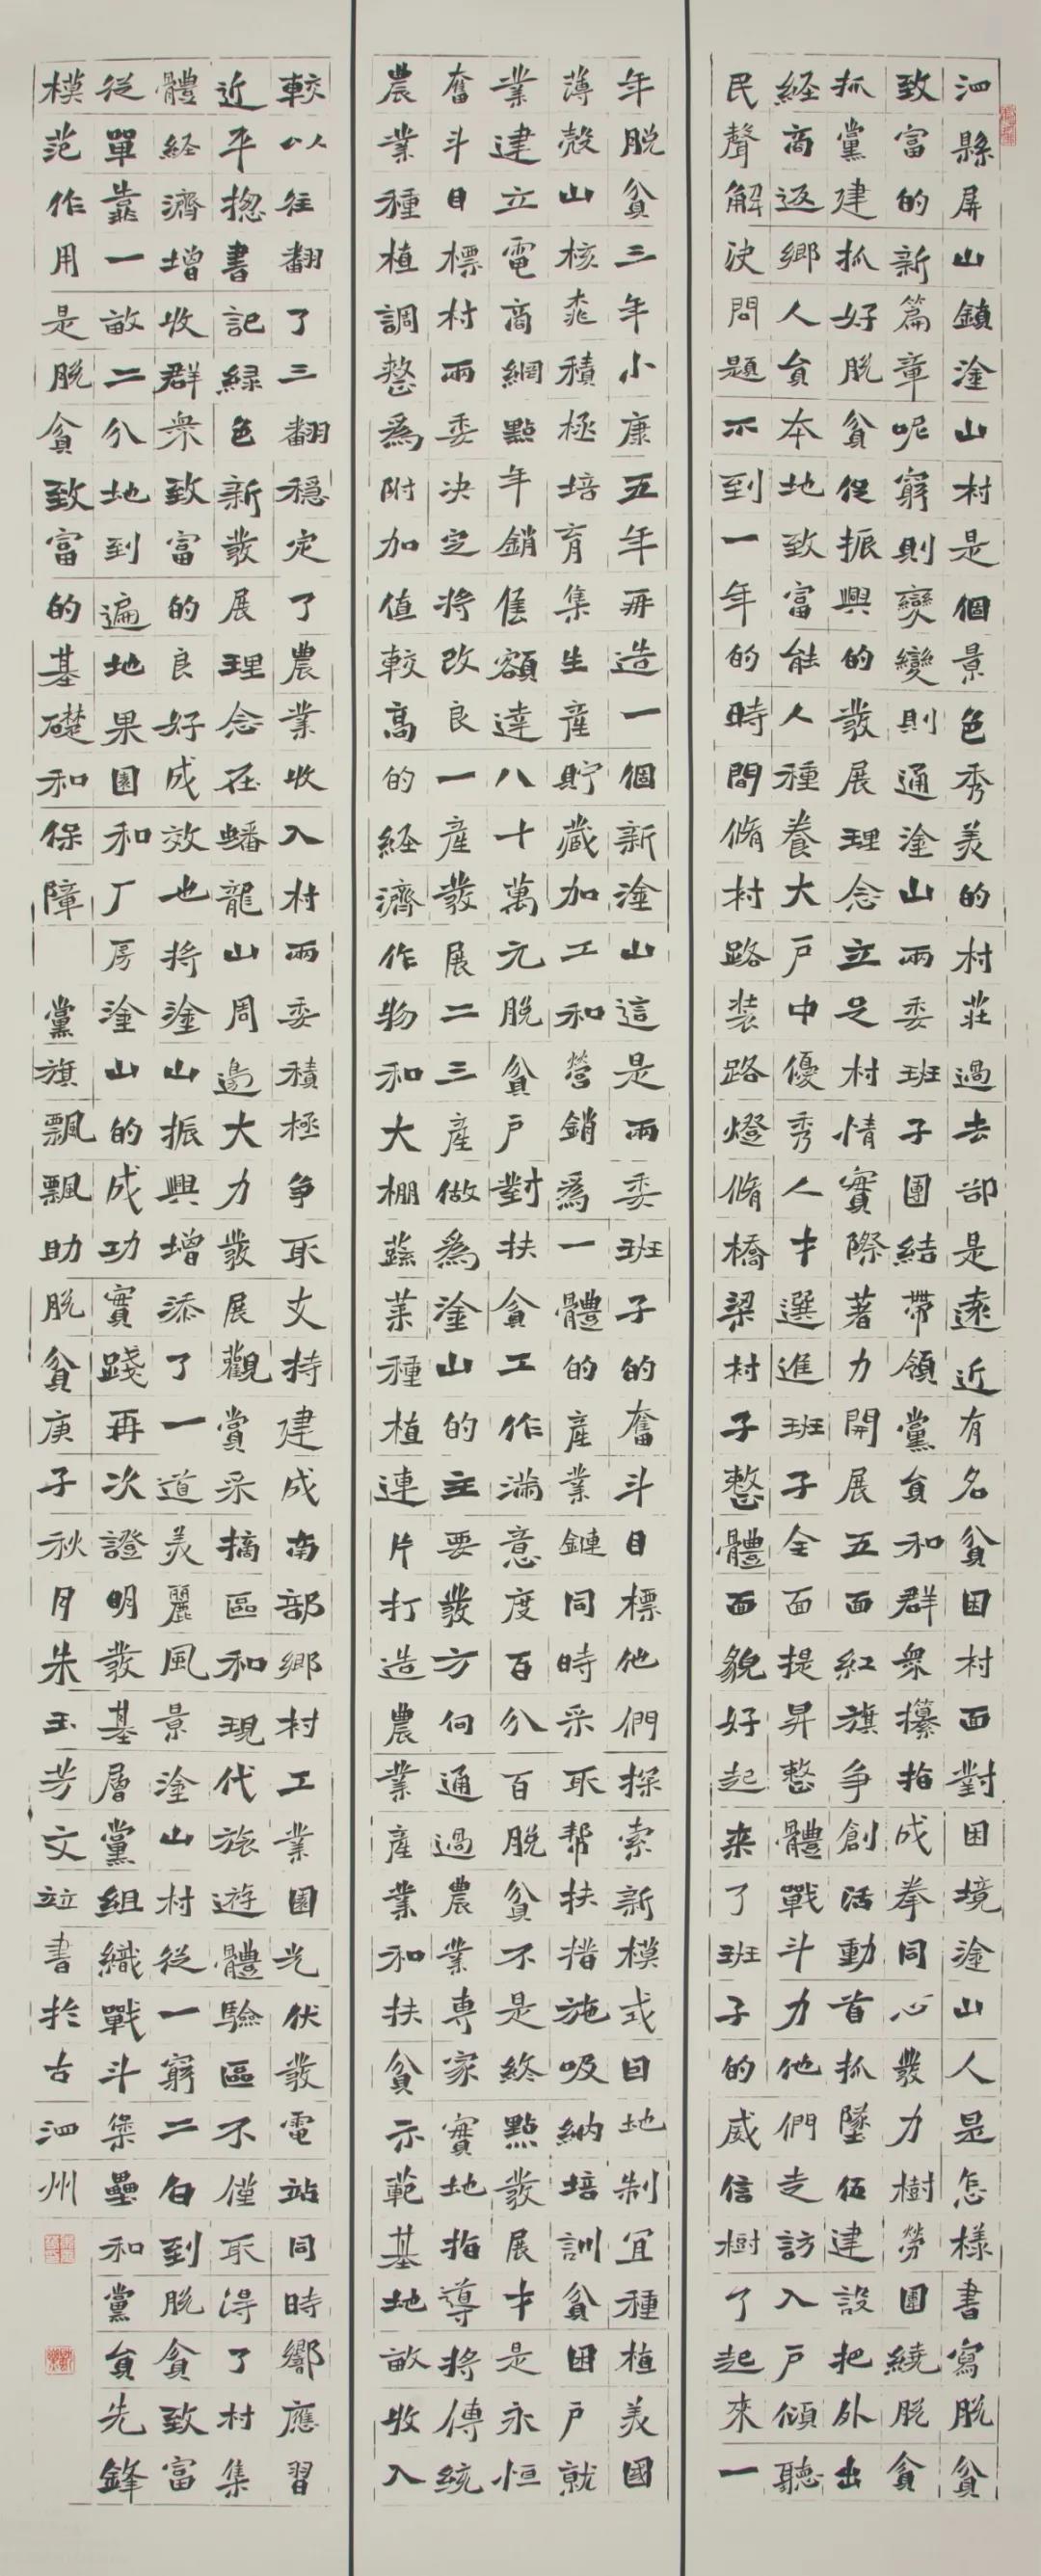 泗縣屏山鎮塗山村是個景色秀美的村莊過去卻是遠近有名貧困村面對困境塗山人是怎樣書寫脫貧
致富的新篇章呢窮則變變則通塗山兩委班子團結帶領黨員和群衆攥指成拳同心發力樹勞圍繞脫貧
抓黨建抓好脫貧促振興的發展理念立足村情實際著力開展五面紅旗爭創活動首抓墜伍建設把外出
經商返鄉人員本地致富能人種養大戶中優秀人才選進班子全面提昇整體戰斗力他們走訪入戶傾聽
民聲解決問題不到一年的時間脩村路裝路燈脩橋梁村子整體面貌好起來了班子的威信樹了起來一
年脫貧三年小康五年再造一個新塗山這是兩委班子的奮斗目標他們探索新模式因地制宜種植美國
薄殼山核桃積極培育集生産貯藏加工和營銷爲一體的産業鏈同時采取幫扶措施吸納培訓貧困戶就
業建立電商網點年銷售額達八十萬元脫貧戶對扶貧工作滿意度百分百脫貧不是終點發展才是永恒
奮斗目標村兩委決定將改良一産發展二三産做爲塗山的主要發方向通過農業專家實地指導將傳統
農業種植調整爲附加值較高的經濟作物和大棚蔬菜種植連片打造農業産業和扶貧示範基地畝收入
較以往翻了三翻穩定了農業收入村兩委積極爭取支持建成南部鄉村工業園光伏發電站同時響應習
近平揔書記緑色新發展理念在蟠龍山周邊大力發展觀賞采摘區和現代旅遊體驗區不僅取得了村集
體經濟增收群衆致富的良好成效也將塗山振興增添了一道美麗風景塗山村從一窮二白到脫貧致富
從單靠一畝二分地到遍地果園和厂房塗山的成功實踐再次證明發基層黨組織戰斗堡壘和黨員先鋒
模范作用是脫貧致富的基礎和保障 黨旗飄飄助脫貧庚子秋月朱玉芳文竝書於古泗州